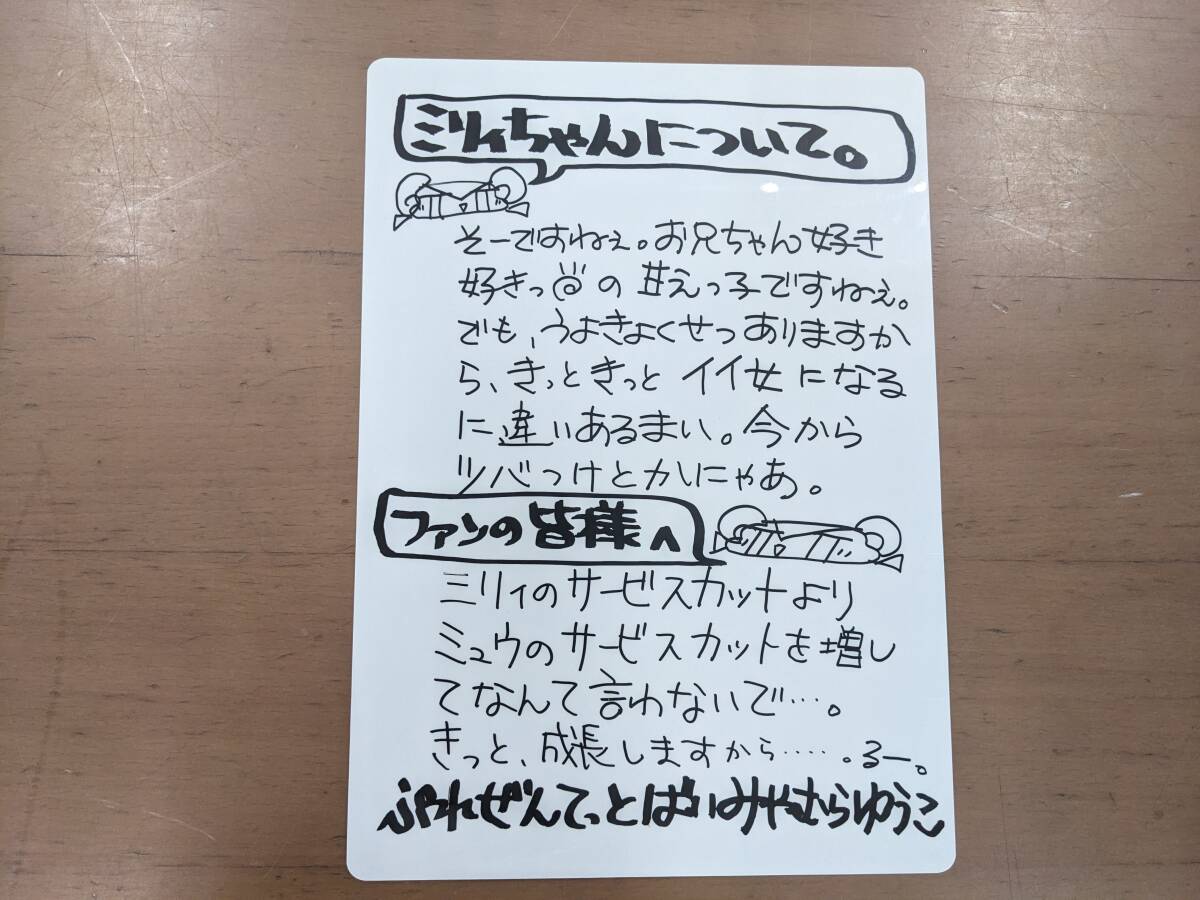 ミリィちゃんについて。
そーですねぇ。お兄ちゃん好き
好きっの甘えっ子ですねぇ。
でも、うよきょくせつありますか
ら、きっときっとイイ女になる
に違いあるまい。今から
ツバつけとかにゃあ。
ファンの皆様へ
ミリィのサービスカットより
ミュウのサービスカットを増し
てなんて言わないで…。
きっと、成長しますから……。るー。
ぷれぜんてっとばいみやむらゆうこ